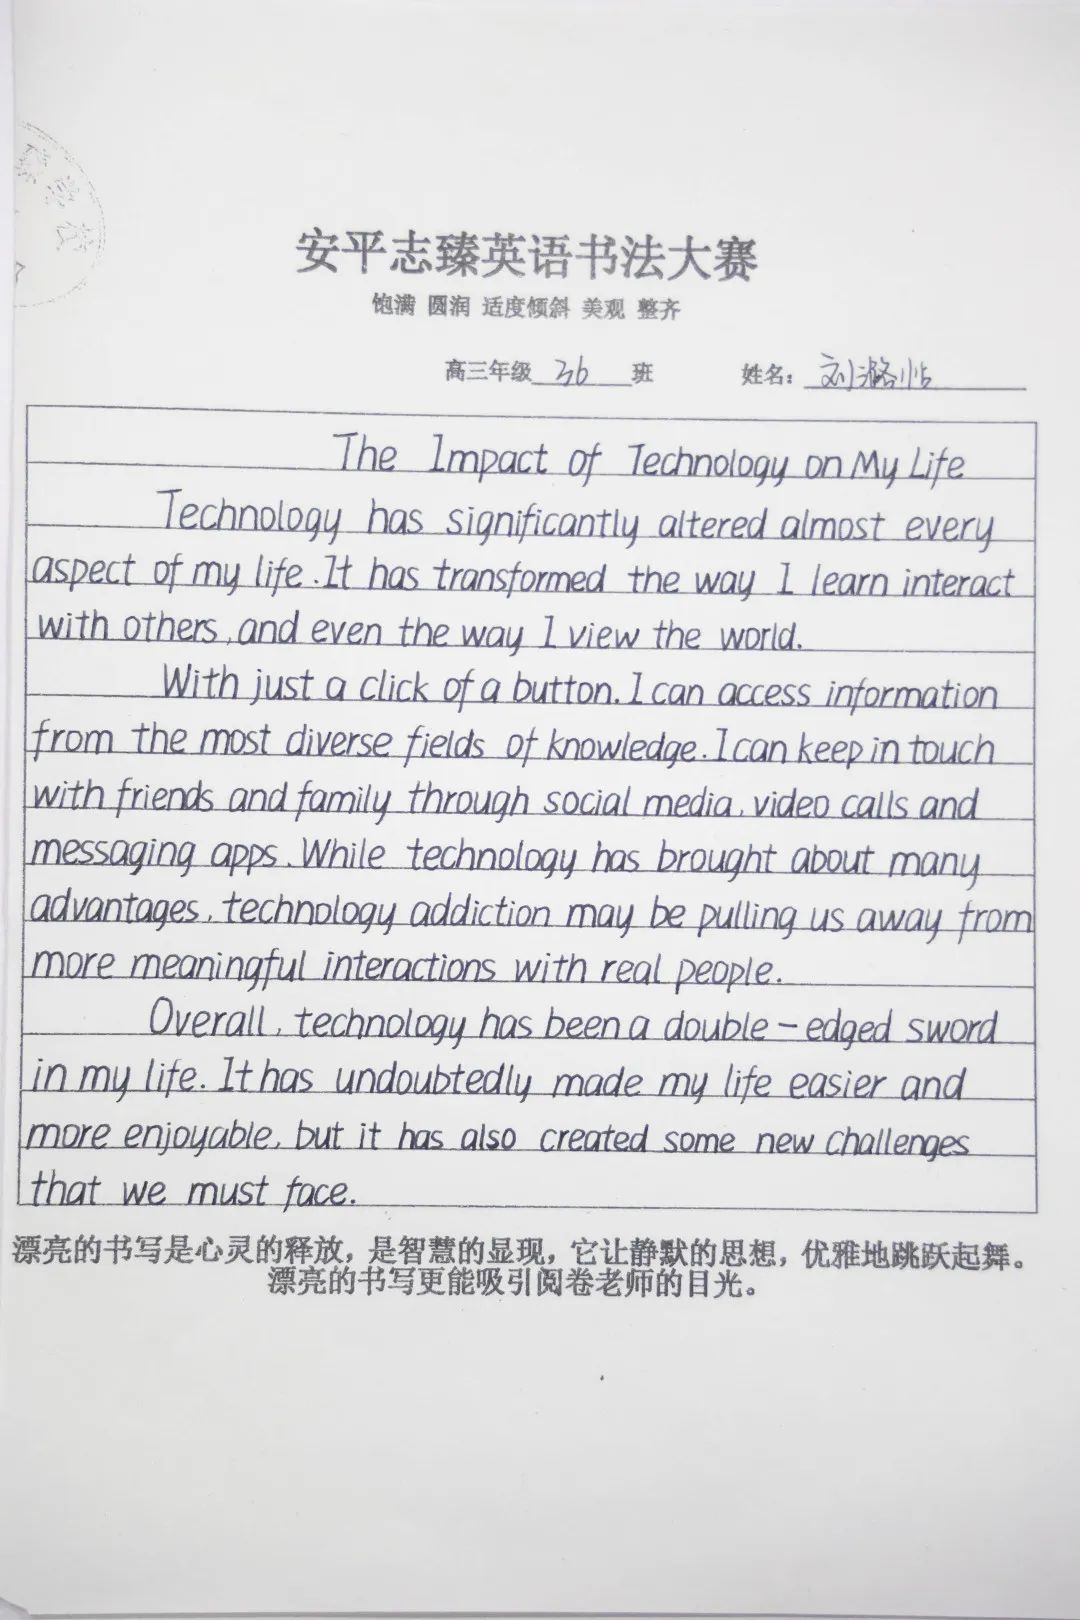 安平志臻英语书法大赛
饱满 圆润 适度倾斜 美观 整齐
高三年级 36 班 姓名: 刘潞
The Impact of Technology on My Life
Technology has significantly altered almost every
aspect of my life. It has transformed the way I learn interact
with others, and even the way I view the world.
With just a click of a button. I can access information
from the most diverse fields of knowledge. I can keep in touch
with friends and family through social media, video calls and
messaging apps. While technology has brought about many
advantages, technology addiction may be pulling us away from
more meaningful interactions with real people.
Overall, technology has been a double-edged sword
in my life. It has undoubtedly made my life easier and
more enjoyable, but it has also created some new challenges
that we must face.
漂亮的书写是心灵的释放，是智慧的显现，它让静默的思想，优雅地跳跃起舞。
漂亮的书写更能吸引阅卷老师的目光。